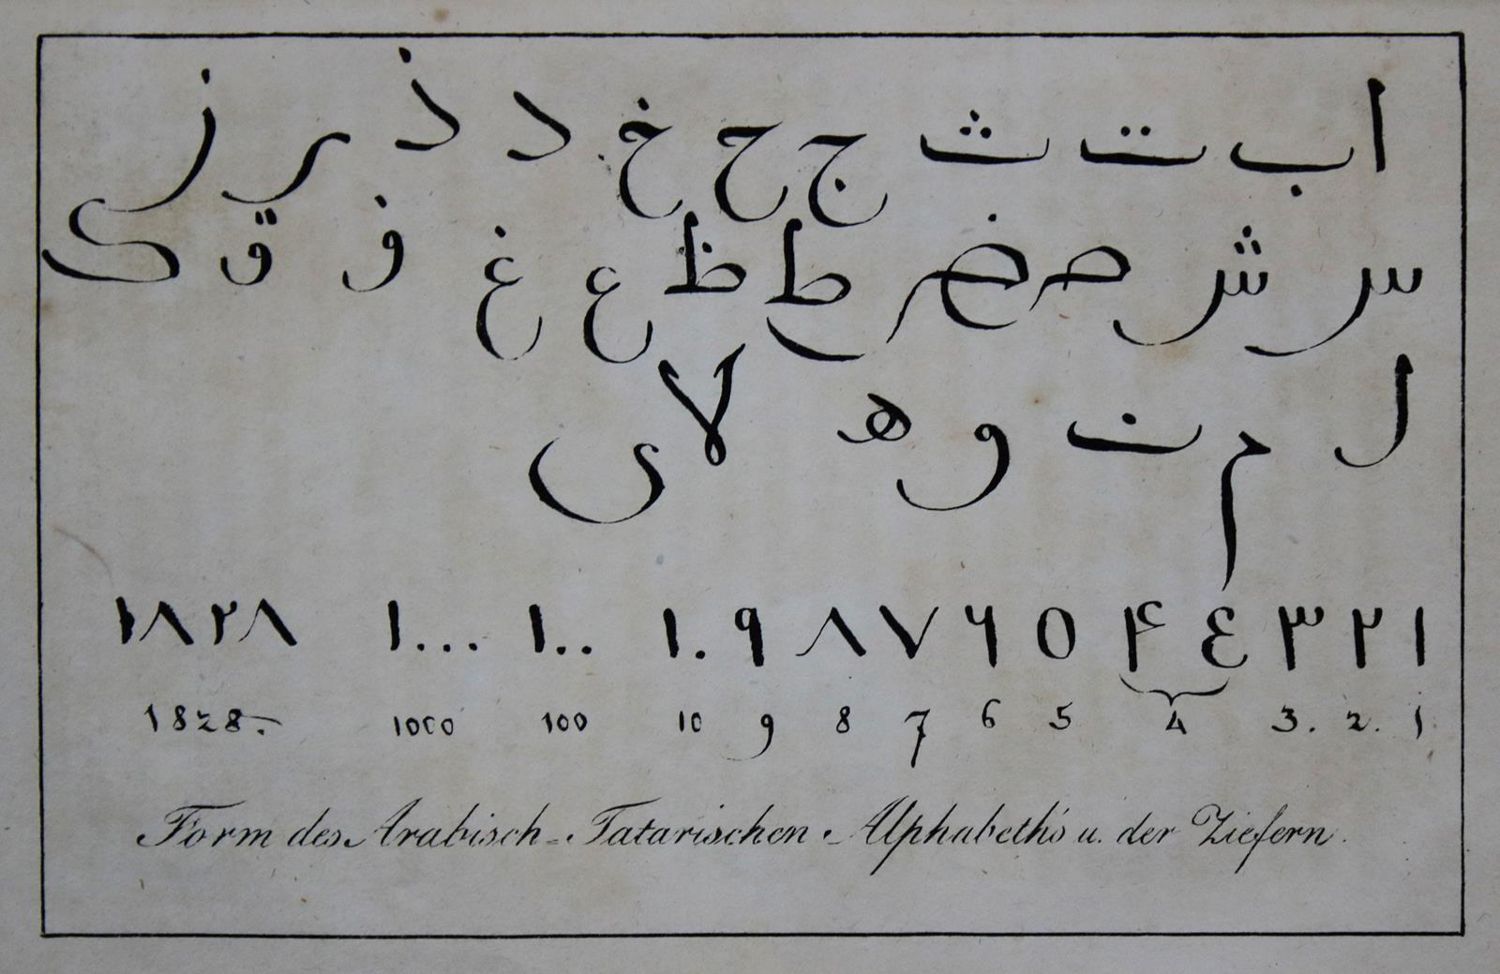 ا ب ت ث ج ح خ د ذ ر ز
س ش ص ض ط ظ ع غ ف ق ک
ل م ن و ه لا ى
١ ٢ ٣ ٤ ۴ ٥ ۶ ٧ ٨ ٩ ١٠ ١٠٠ ١٠٠٠ ١٨٢٨
1828. 1000 100 10 9 8 7 6 5 4 3. 2. 1
Form des Arabisch-Tatarischen Alphabeths u. der Ziefern.